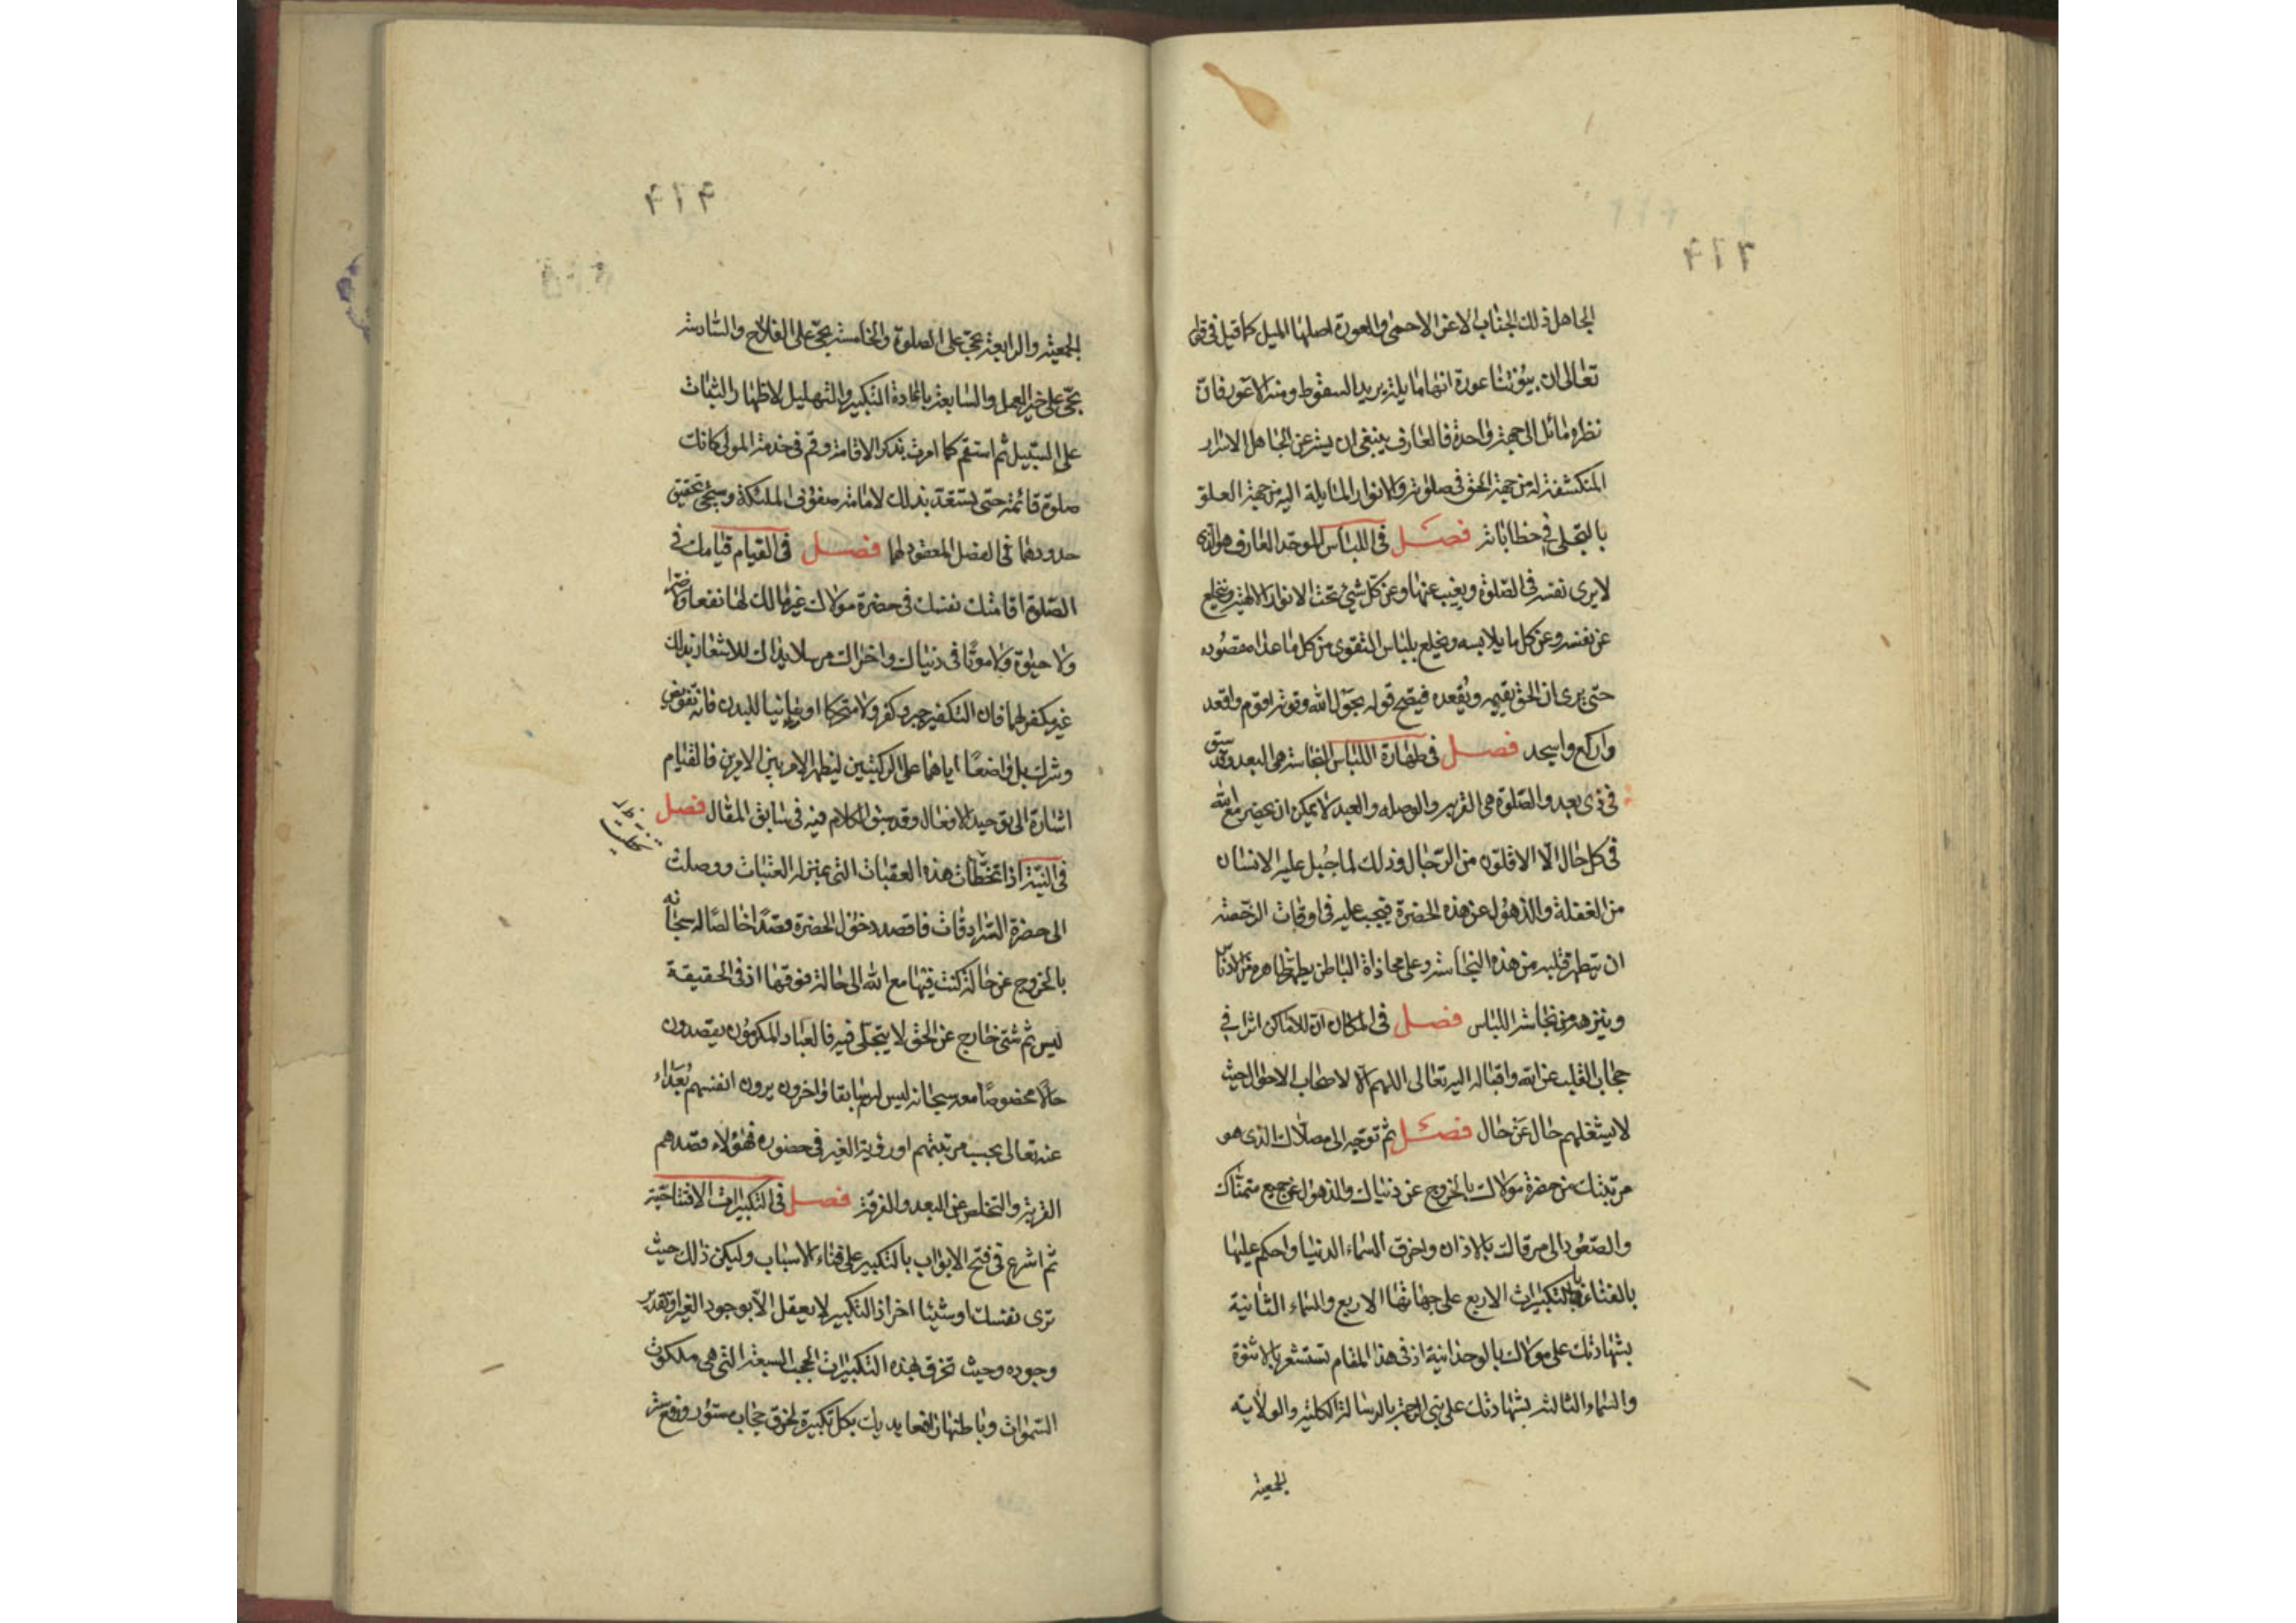 الجاهل ذلك الجناب الاعز الاحمى والعورة اصلها الميل كما قيل فى قوله
تعالى ان بيوتنا عورة انها مايلة يريد السقوط ومنه الاعور فان
نظره مائل الى جهة واحدة فالعارف ينبغى ان يستر عن الجاهل الاسرار
المنكشفة له من جهة الحق فى صلوته والانوار المتايلة اليه من جهة العلو
بالتجلى فى خطاباته فصل فى اللباس الموحد العارف هو الذى
لا يرى نفسه فى الصلوة ويغيب عنها وعن كل شئ تحت الانوار الالهية وينخلع
عن نفسه وعن كل ما يلابسه ويخلع بلباس التقوى من كل ما عدا مقصوده
حتى يرى ان الحق يقيمه ويقعده فيصح قوله بحول الله وقوته اقوم واقعد
واركع واسجد فصل فى طهارة اللباس النجاسة هى البعد وقد سبق
فى ذى بعد والصلوة هى القربة والوصلة والعبد لا يمكن ان يحضر مع الله
فى كل حال الا الاقلون من الرجال وذلك لما جبل عليه الانسان
من الغفلة والذهول عن هذه الحضرة فيجب عليه فى اوقات الرخصة
ان يتطهر قلبه من هذه النجاسة وعلى محاذاة الباطن يطهر ظاهره من الادناس
وينزهه من نجاسة اللباس فصل فى المكان ان للاماكن اثرا فى
حجاب القلب عن الله واقباله اليه تعالى اللهم الا لاصحاب الاحوال حيث
لا يشغلهم حال عن حال فصل ثم توجه الى مصلاك الذى هو
مرتبتك من حضرة مولاك بالخروج عن دنياك والذهول عن جميع متمناك
والصعود الى مرقاك بالاذان واخرق السماء الدنيا واحكم عليها
بالفناء بالتكبيرات الاربع على جهاتها الاربع والسماء الثانية
بشهادتك على مولاك بالوحدانية اذ فى هذا المقام تستشعر بالاثنوة
والسماء الثالثة بشهادتك على نبى الرحمة بالرسالة الكلية والولاية
الجمعية
الجمعية والرابعة بحى على الصلوة والخامسة بحى على الفلاح والسادسة
بحى على خير العمل والسابعة باعادة التكبير والتهليل لاظهار الثبات
على السبيل ثم استقم كما امرت بذكر الاقامة وقم فى خدمة المولى كانك
صلوة قائمة حتى يستعد بذلك لامامة صفوف الملئكة وسيجئ تحقيق
حدودهما فى الفصل المعقود لهما فصل فى القيام قيامك فى
الصلوة اقامتك نفسك فى حضرة مولاك غير مالك لها نفعا ولا ضرا
ولا حيوة ولا موتا فى دنياك واخراك مرسلا يداك للاشعار بذلك
غير مكفر لهما فان التكفير جبر وكفر ولا متحركا او للبدن فانه تفويض
وشرك بل واضعا اياهما على الركبتين ليظهر الامر بين الامرين فالقيام
اشارة الى توحيد الافعال وقد سبق الكلام فيه فى سابق المقال فصل
فى النية اذا تخطات هذه العقبات التى بمنزلة العتبات ووصلت
الى حضرة السرادقات فاقصد دخول الحضرة قصدا خالصا له سبحانه
بالخروج عن حالة كنت فيها مع الله الى حالة فوقها اذ فى الحقيقة
ليس ثم شئ خارج عن الحق لا يتجلى فيه فالعباد المكرمون يقصدون
حالا مخصوصا معه سبحانه ليس لهم سابقا واخرون يرون انفسهم بعداء
عنه تعالى بحسب مرتبتهم او رؤية الغير فى حضوره فهؤلاء قصدهم
القربة والتخلص عن البعد والفرقة فصل فى التكبيرات الافتتاحية
ثم اشرع فى فتح الابواب بالتكبير على فناء الاسباب وليكن ذلك حيث
ترى نفسك او شيئا اخر اذ التكبير لا يعقل الا بوجود الغير او تقدير
وجوده وحيث تخرق بهذه التكبيرات الحجب السبعة التى هى ملكوت
السموات وباطنها رافعا يديك بكل تكبيرة لخرق حجاب مستور ورفع ستر